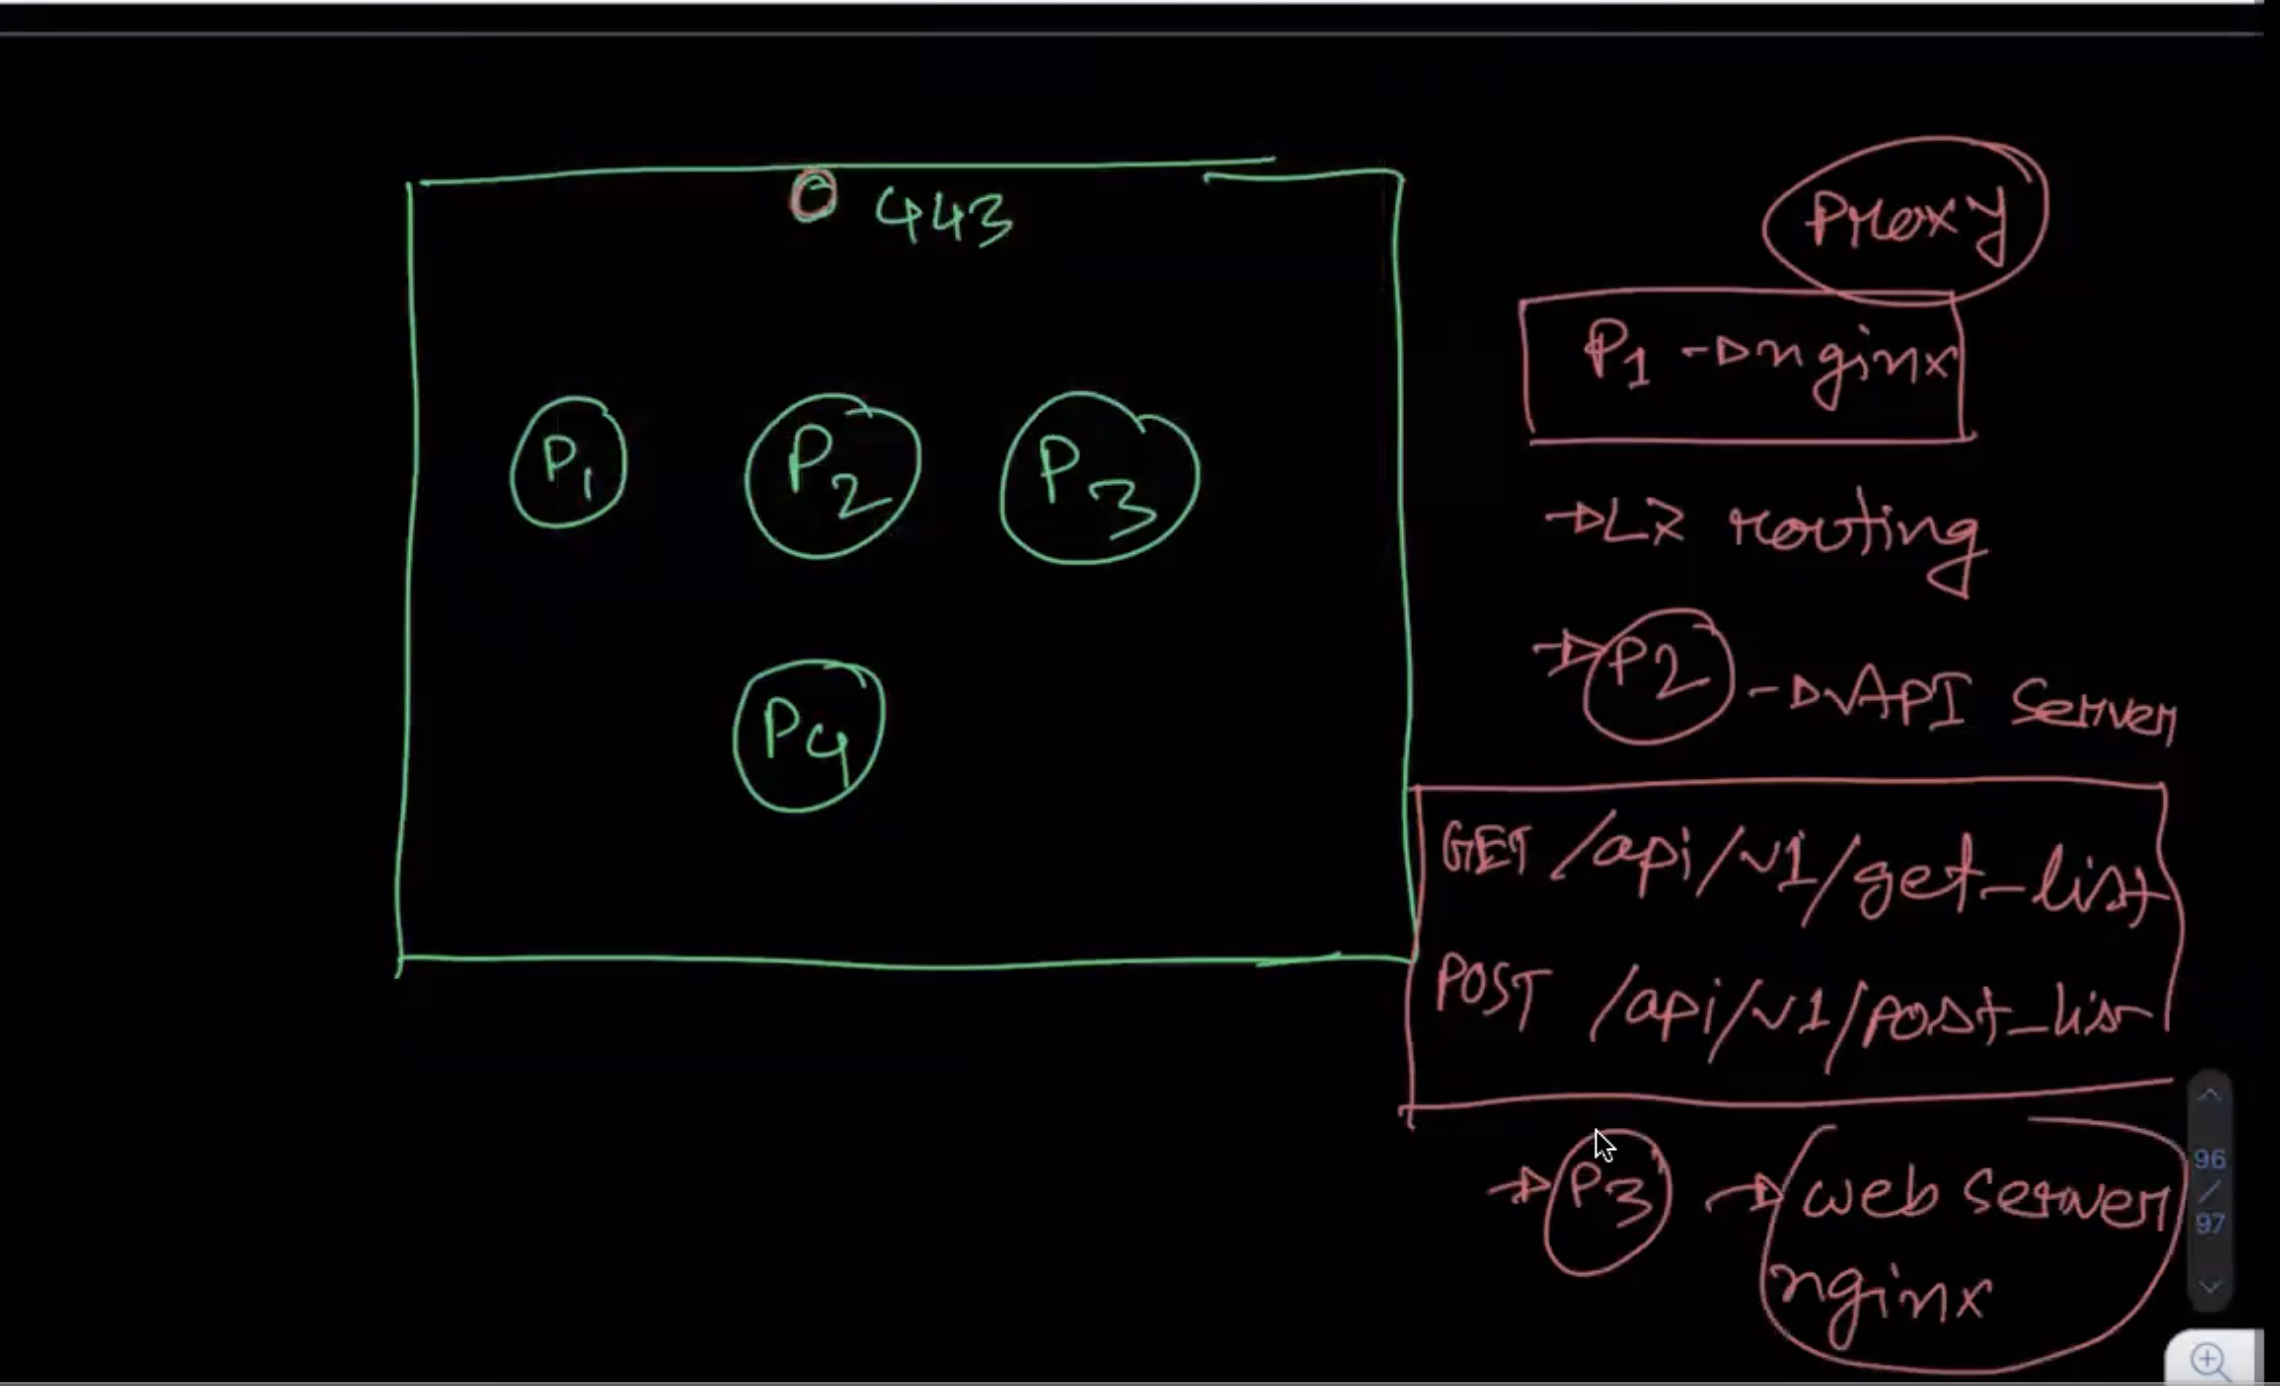 443
P1
P2
P3
P4
Proxy
P1 → nginx
→ L7 routing
→ P2 → API Server
GET /api/v1/get_list
POST /api/v1/post_list
→ P3 → web server
nginx
96
/
97